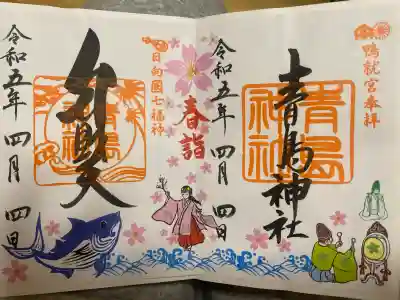 鴨就宮奉拝
青島神社
青島
神社
令和五年四月四日
春詣
日向國七福神
弁財天
青島
神社
令和五年四月四日